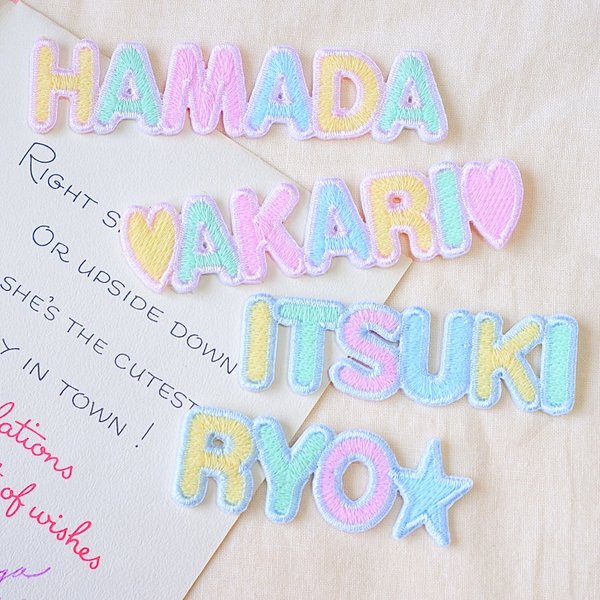 HAMADA
AKARI
ITSUKI
RYO
RIGHT S
OR UPSIDE DOWN
SHE'S THE CUTEST
IN TOWN !
of wishes